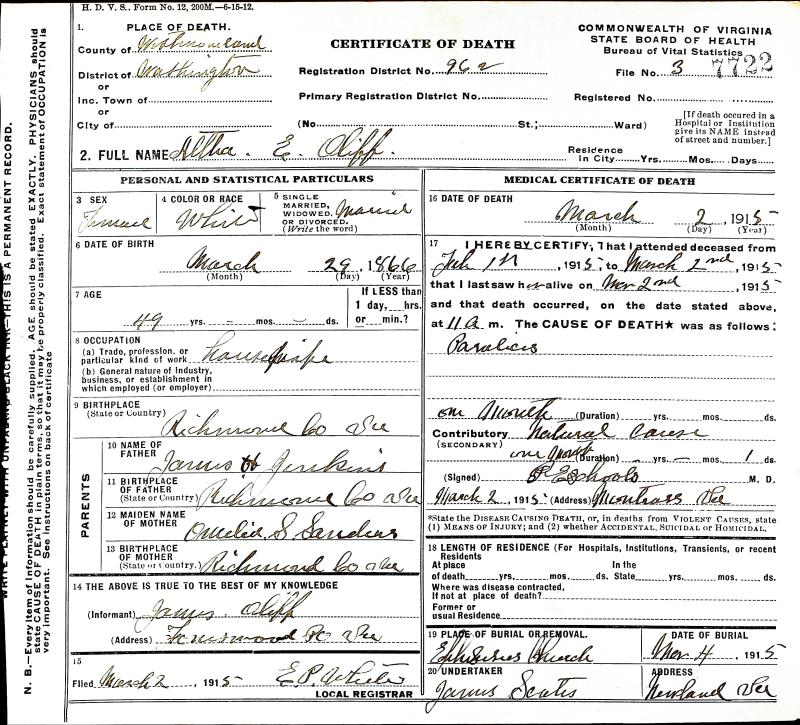 H. D. V. S., Form No. 12, 200M.—6-15-12.
1. PLACE OF DEATH.
County of Westmoreland
District of Washington
or
Inc. Town of
or
City of
CERTIFICATE OF DEATH
Registration District No. 962
Primary Registration District No.
(No. St.; Ward)
COMMONWEALTH OF VIRGINIA
STATE BOARD OF HEALTH
Bureau of Vital Statistics
File No. 3 7722
Registered No.
[If death occured in a
Hospital or Institution
give its NAME instead
of street and number.]
2. FULL NAME E. Oliff.
Residence
In City Yrs. Mos. Days
PERSONAL AND STATISTICAL PARTICULARS
3 SEX Female
4 COLOR OR RACE White
5 SINGLE
MARRIED,
WIDOWED,
OR DIVORCED.
(Write the word)
Married
6 DATE OF BIRTH
March 29, 1866
(Month) (Day) (Year)
7 AGE
49 yrs. – mos. – ds.
If LESS than
1 day, hrs.
or min.?
8 OCCUPATION
(a) Trade, profession, or
particular kind of work housewife
(b) General nature of Industry,
business, or establishment in
which employed (or employer)
9 BIRTHPLACE
(State or Country)
Richmond Co Va
PARENTS
10 NAME OF
FATHER
James Jenkins
11 BIRTHPLACE
OF FATHER
(State or Country)
Richmond Co Va
12 MAIDEN NAME
OF MOTHER
S. Sanders
13 BIRTHPLACE
OF MOTHER
(State or Country)
Richmond Co Va
14 THE ABOVE IS TRUE TO THE BEST OF MY KNOWLEDGE
(Informant) James Oliff
(Address) Va
15
Filed March 2, 1915 E. P. White
LOCAL REGISTRAR
MEDICAL CERTIFICATE OF DEATH
16 DATE OF DEATH
March 2, 1915
(Month) (Day) (Year)
17 I HEREBY CERTIFY, That I attended deceased from
Feb 1st, 1915, to March 2nd, 1915
that I last saw her alive on Mar 2nd, 1915
and that death occurred, on the date stated above,
at 11 a m. The CAUSE OF DEATH★ was as follows:
Paralicis
one Month (Duration) yrs. mos. ds.
Contributory Natural Cause
(SECONDARY)
one month (Duration) – yrs. – mos. 1 ds.
(Signed) M. D.
March 2, 1915 (Address) Montross Va
*State the DISEASE CAUSING DEATH, or, in deaths from VIOLENT CAUSES, state
(1) MEANS OF INJURY; and (2) whether ACCIDENTAL, SUICIDAL or HOMICIDAL.
18 LENGTH OF RESIDENCE (For Hospitals, Institutions, Transients, or recent
Residents
At place In the
of death yrs. mos. ds. State yrs. mos. ds.
Where was disease contracted,
If not at place of death?
Former or
usual Residence
19 PLACE OF BURIAL OR REMOVAL.
Church
DATE OF BURIAL
Mar 4, 1915
20 UNDERTAKER
James Scates
ADDRESS
Newland Va
WRITE PLAINLY WITH UNFADING BLACK INK—THIS IS A PERMANENT RECORD.
N. B.—Every item of information should be carefully supplied. AGE should be stated EXACTLY. PHYSICIANS should
state CAUSE OF DEATH in plain terms, so that it may be properly classified. Exact statement of OCCUPATION is
very important. See instructions on back of certificate